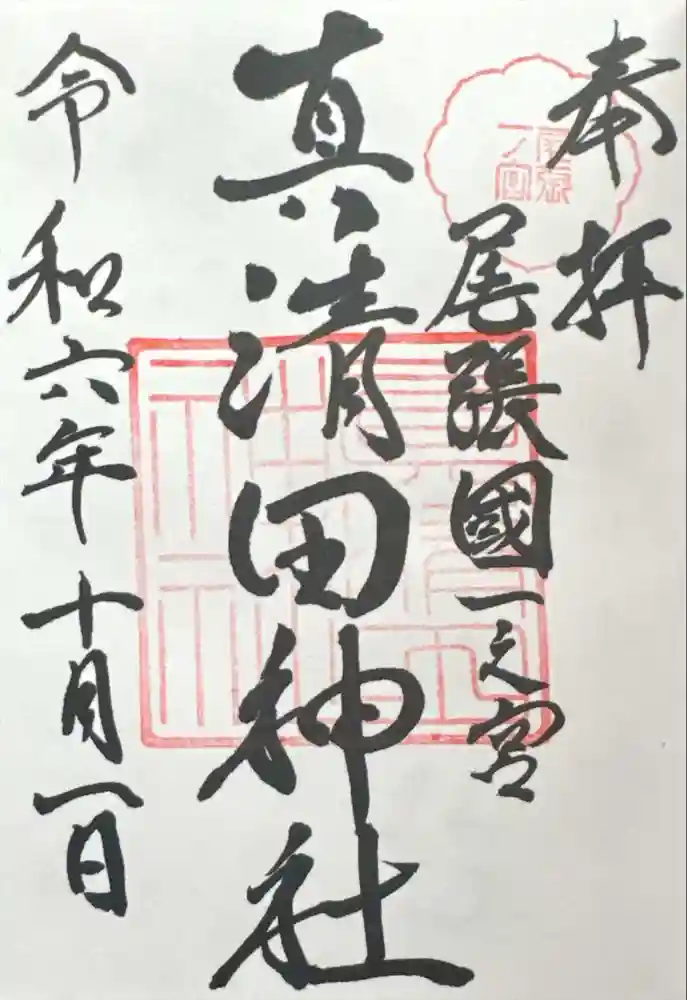 奉拝
尾張國一之宮
真清田神社
令和六年十月一日
尾張
一ノ宮